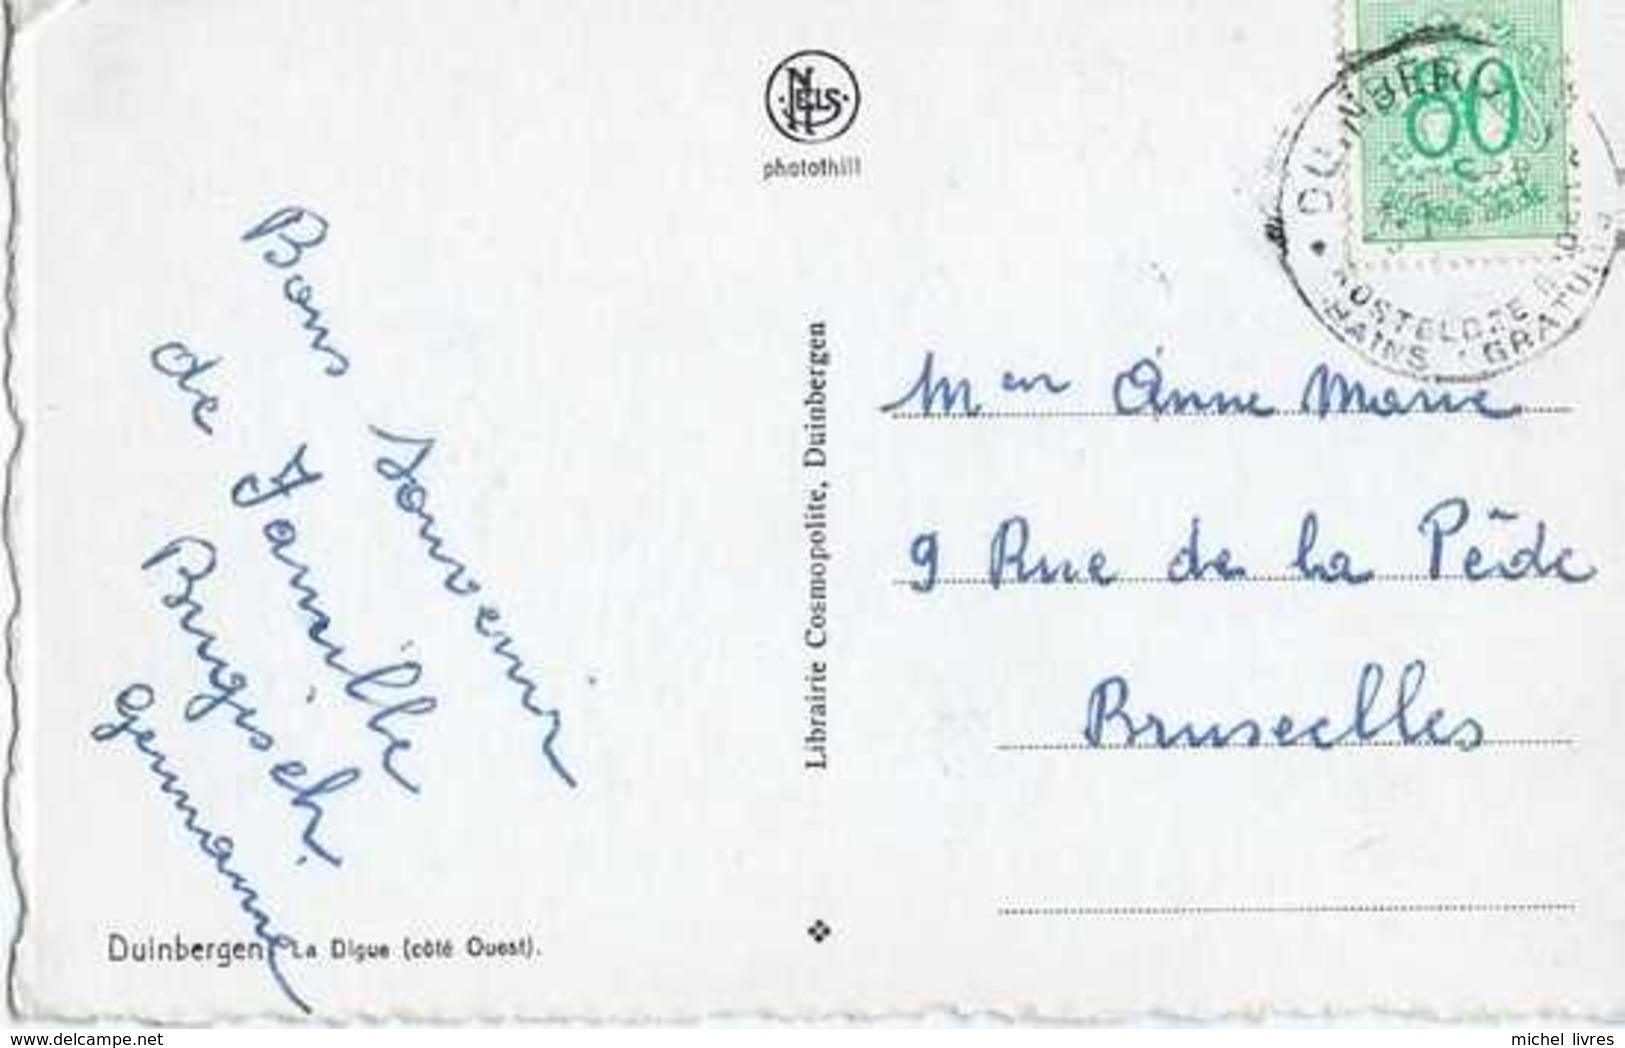 NELS
photothill
80
DUINBERG
BELGIQUE BELGIE
KOSTELOZE
BAINS · GRATUITS
Bons Souvenir
de Famille
Brugisch
Germaine
Librairie Cosmopolite, Duinbergen
Anne Marie
9 Rue de la Pède
Bruxelles
Duinbergen. La Digue (côté Ouest).
www.delcampe.net
michel livres